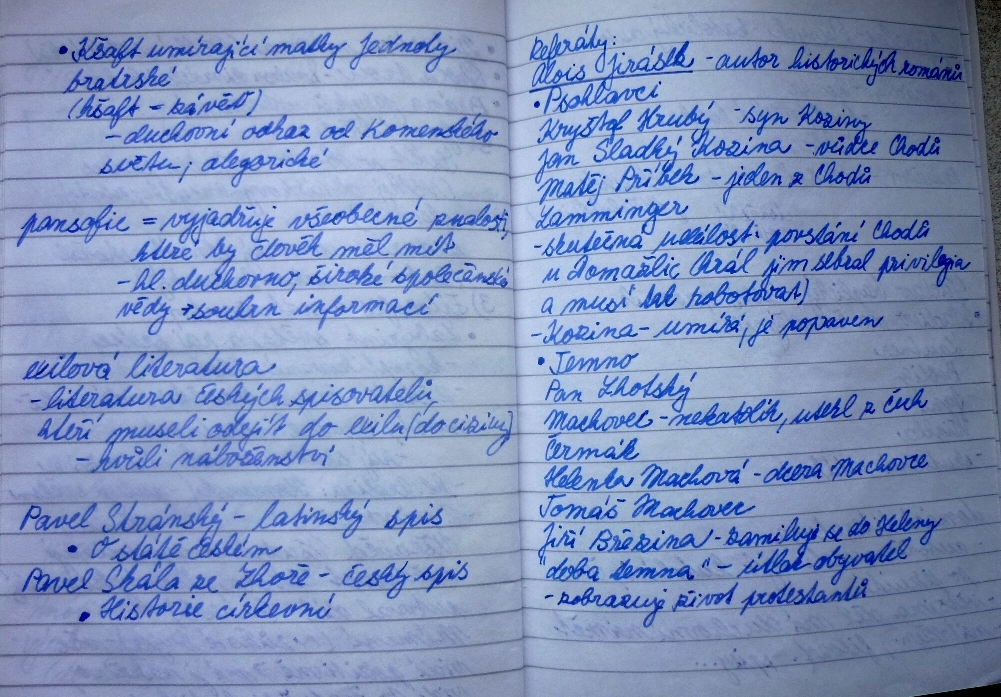 • Kšaft umírající matky Jednoty
bratrské
(kšaft = závěť)
- duchovní odkaz od Komenského
světu, alegorické
pansofie = vyjadřuje všeobecné znalosti,
které by člověk měl mít
- hl. duchovno, široké společenské
vědy + souhrn informací
exilová literatura
- literatura českých spisovatelů,
kteří museli odejít do exilu (do ciziny)
- kvůli náboženství
Pavel Stránský - latinský spis
• O státě českém
Pavel Skála ze Zhoře - český spis
• Historie církevní
Referáty:
Alois Jirásek - autor historických románů
• Psohlavci
Kryštof Hrubý - syn Koziny
Jan Sladký Kozina - vůdce Chodů
Matěj Příbek - jeden z Chodů
Lamminger
- skutečná událost: povstání Chodů
u Domažlic, král jim sebral privilegia
a musí tak robotovat)
- Kozina - umírá, je popaven
• Temno
Pan Lhotský
Machovec - nekatolík, utekl z Čech
Čermák
Helenka Machová - dcera Machovce
Tomáš Machovec
Jiří Březina - zamiluje se do Heleny
"doba temna" - útlak obyvatel
- zobrazuje život protestantů